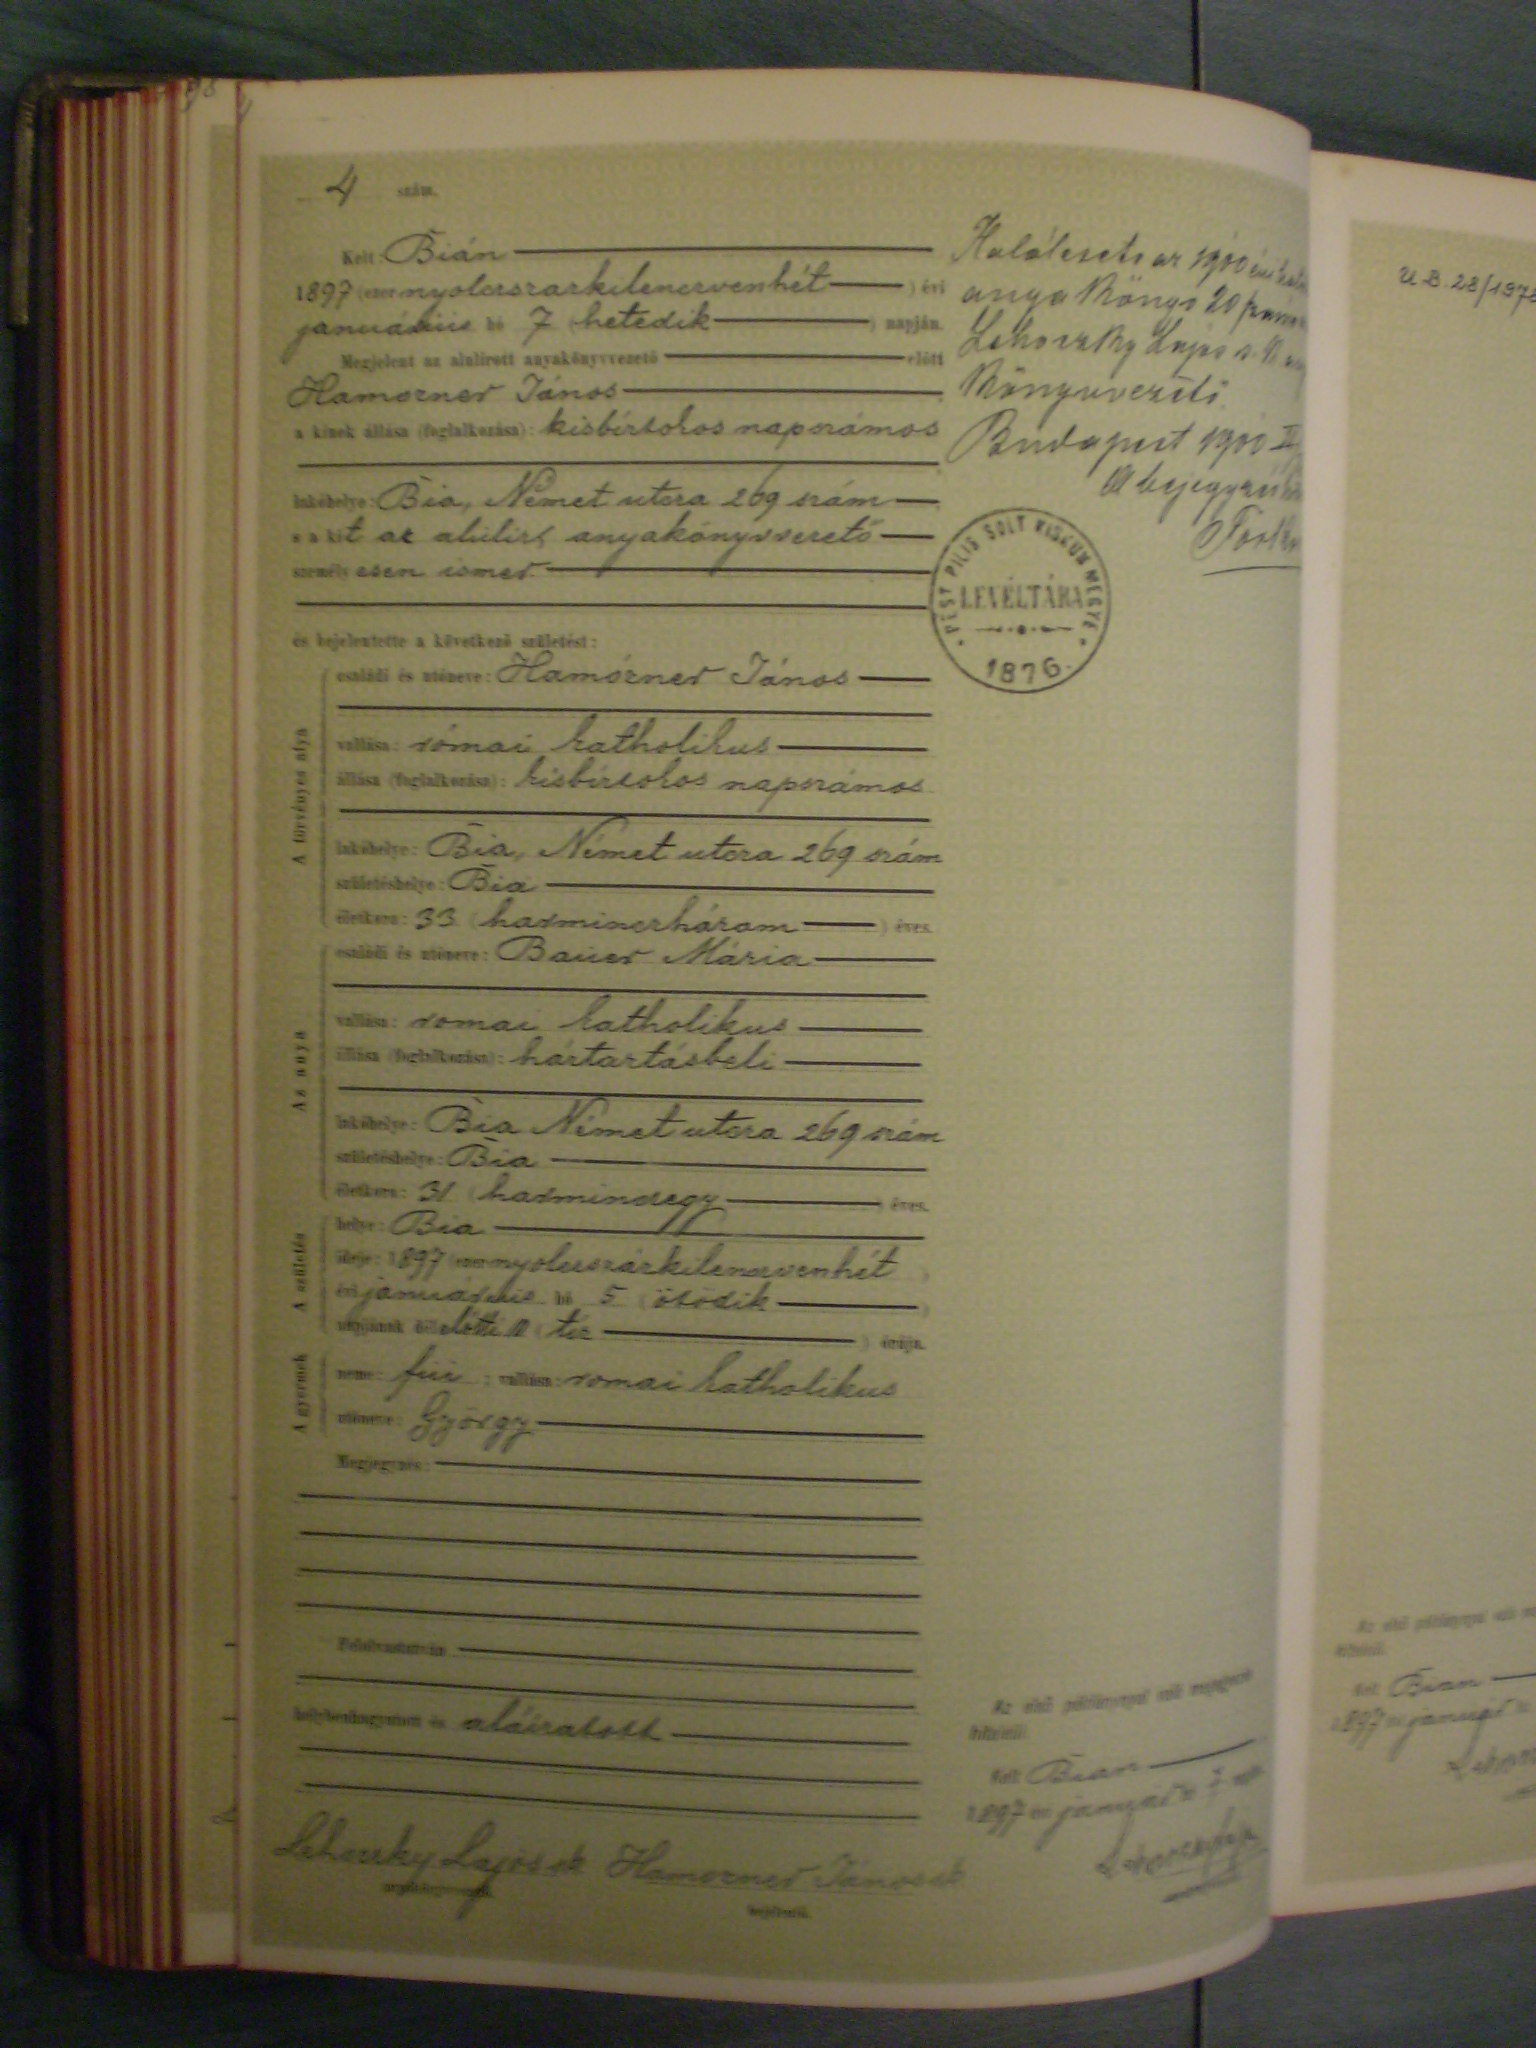 4 szám.
Kelt: Bián
1897 (ezer nyolczszázkilenczvenhét) évi
januárius hó 7 (hetedik) napján.
Megjelent az alulírott anyakönyvvezető előtt
Hamorzner János
a kinek állása (foglalkozása): kisbirtokos napszámos
lakóhelye: Bia, Német utcza 269 szám
s a kit az alulírt anyakönyvvezető
személyesen ismer.
és bejelentette a következő születést:
A törvényes atya
családi és utóneve: Hamórzner János
vallása: római katholikus
állása (foglalkozása): kisbirtokos napszámos
lakóhelye: Bia, Német utcza 269 szám
születéshelye: Bia
életkora: 33 (harminczhárom) éves.
Az anya
családi és utóneve: Bauer Mária
vallása: romai katholikus
állása (foglalkozása): háztartásbeli
lakóhelye: Bia Német utcza 269 szám
születéshelye: Bia
életkora: 31 (harminczegy) éves.
A születés
helye: Bia
ideje: 1897 (ezer nyolczszázkilenczvenhét)
évi januárius hó 5 (ötödik)
napjának délelőtti 10 (tíz) órája.
A gyermek
neme: fiú; vallása: romai katholikus
utóneve: György
Megjegyzés:
Felolvastatván
helybenhagyatott és aláíratott
Lehoczky Lajos sk Hamorzner János sk
anyakönyvvezető. bejelentő.
Halálesete az 1900 évi
anya könyv 20 szám
Lehoczky Lajos s. k.
könyvvezető.
Budapest 1900 II
A bejegyzés
PEST PILIS SOLT KISKUN MEGYE
LEVÉLTÁRA
1876.
Az első példánynyal való megegyezés
hiteléül.
Kelt Bian
1897 évi január hó 7 napján
U.B. 28/197
Az első példánynyal való
hiteléül.
Kelt Bian
1897 évi január